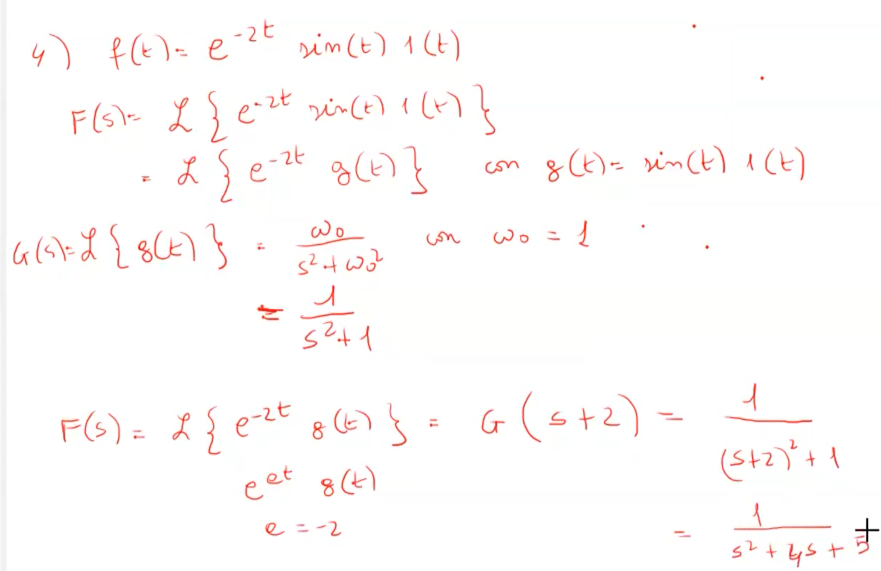 4) f(t) = e^{-2t} sin(t) 1(t)
F(s) = ℒ { e^{-2t} sin(t) 1(t) }
= ℒ { e^{-2t} g(t) } con g(t) = sin(t) 1(t)
G(s) = ℒ { g(t) } = ω₀ / (s² + ω₀²) con ω₀ = 1
= 1 / (s² + 1)
F(s) = ℒ { e^{-2t} g(t) } = G(s+2) = 1 / ((s+2)² + 1)
e^{at} g(t)
a = -2
= 1 / (s² + 4s + 5)